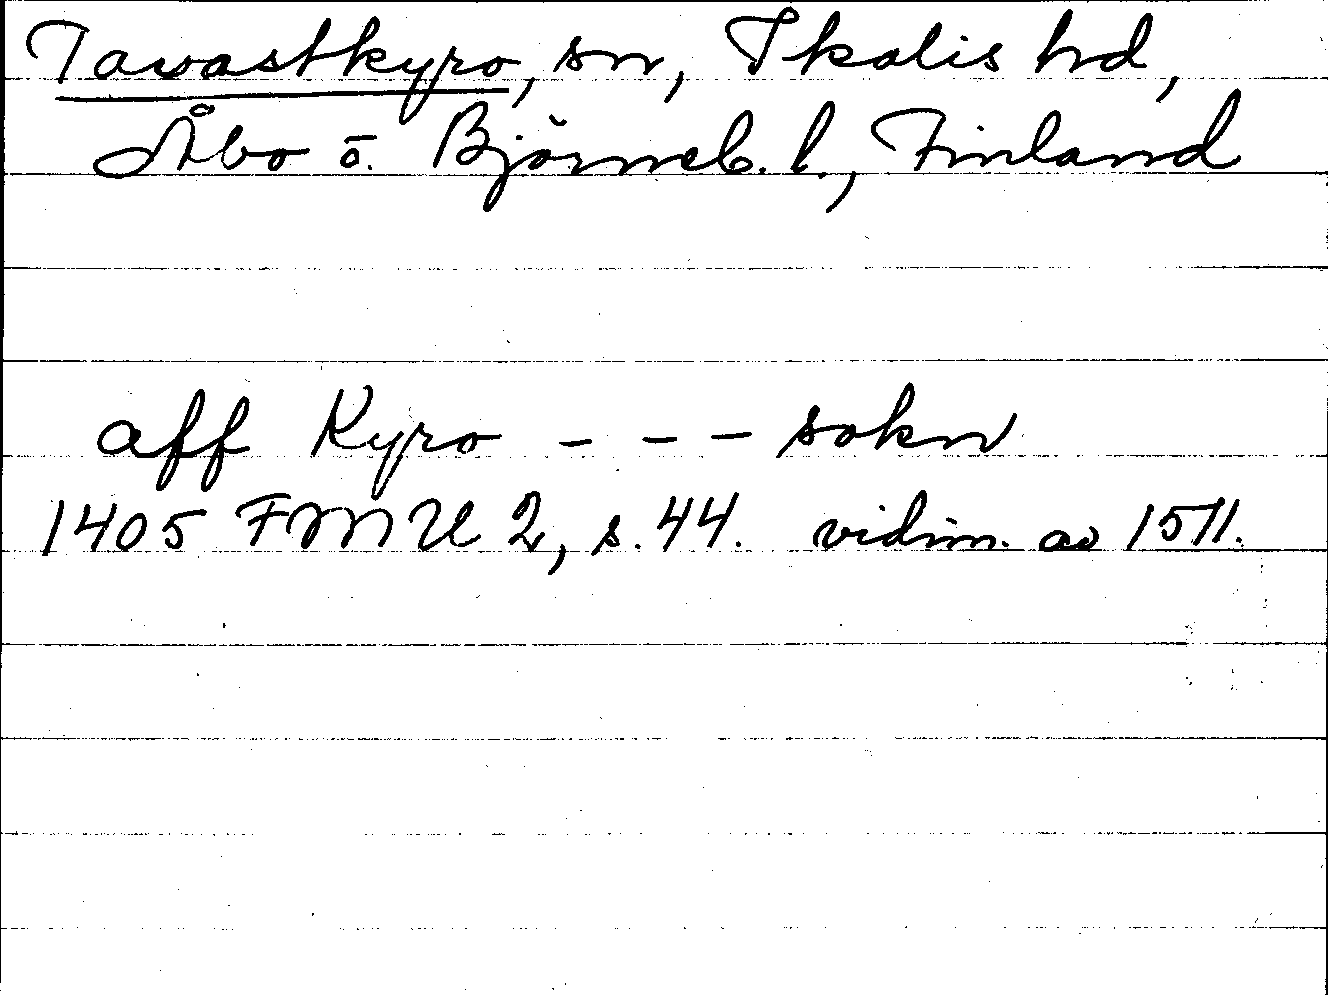 Tavastkyro, sn, Ikalis hd,
Åbo o. Björneb. l., Finland
aff Kyro - - - sokn
1405 FMU 2, s. 44. vidim. av 1511.